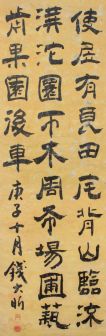 使居有良田宅背山臨流
溝池木周布場圃
前果園後車
庚子十月錢大昕